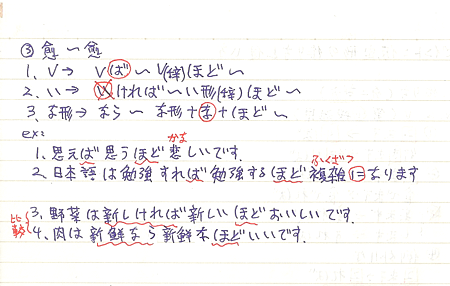 ③ 愈～愈
1、V→ Vば～V(辞)ほど～
2、い→ いければ～い形(辞)ほど～
3、な形→なら～な形+な+ほど～
ex:
かな
1、思えば思うほど悲しいです.
ふくざつ
2、日本語は勉強すれば勉強するほど複雑になります
比較
3、野菜は新しければ新しいほどおいしいです.
4、肉は新鮮なら新鮮なほどいいです.